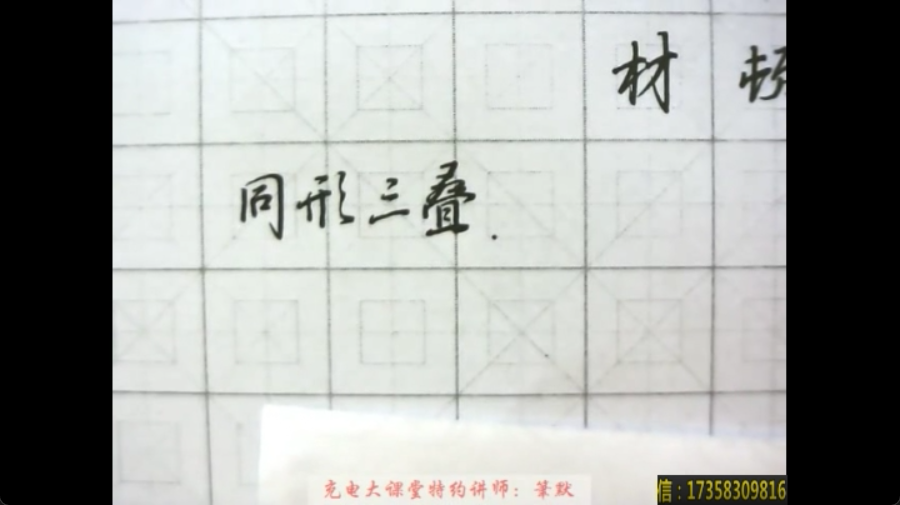 材
同形三叠.
充电大课堂特约讲师：笔默
信：17358309816